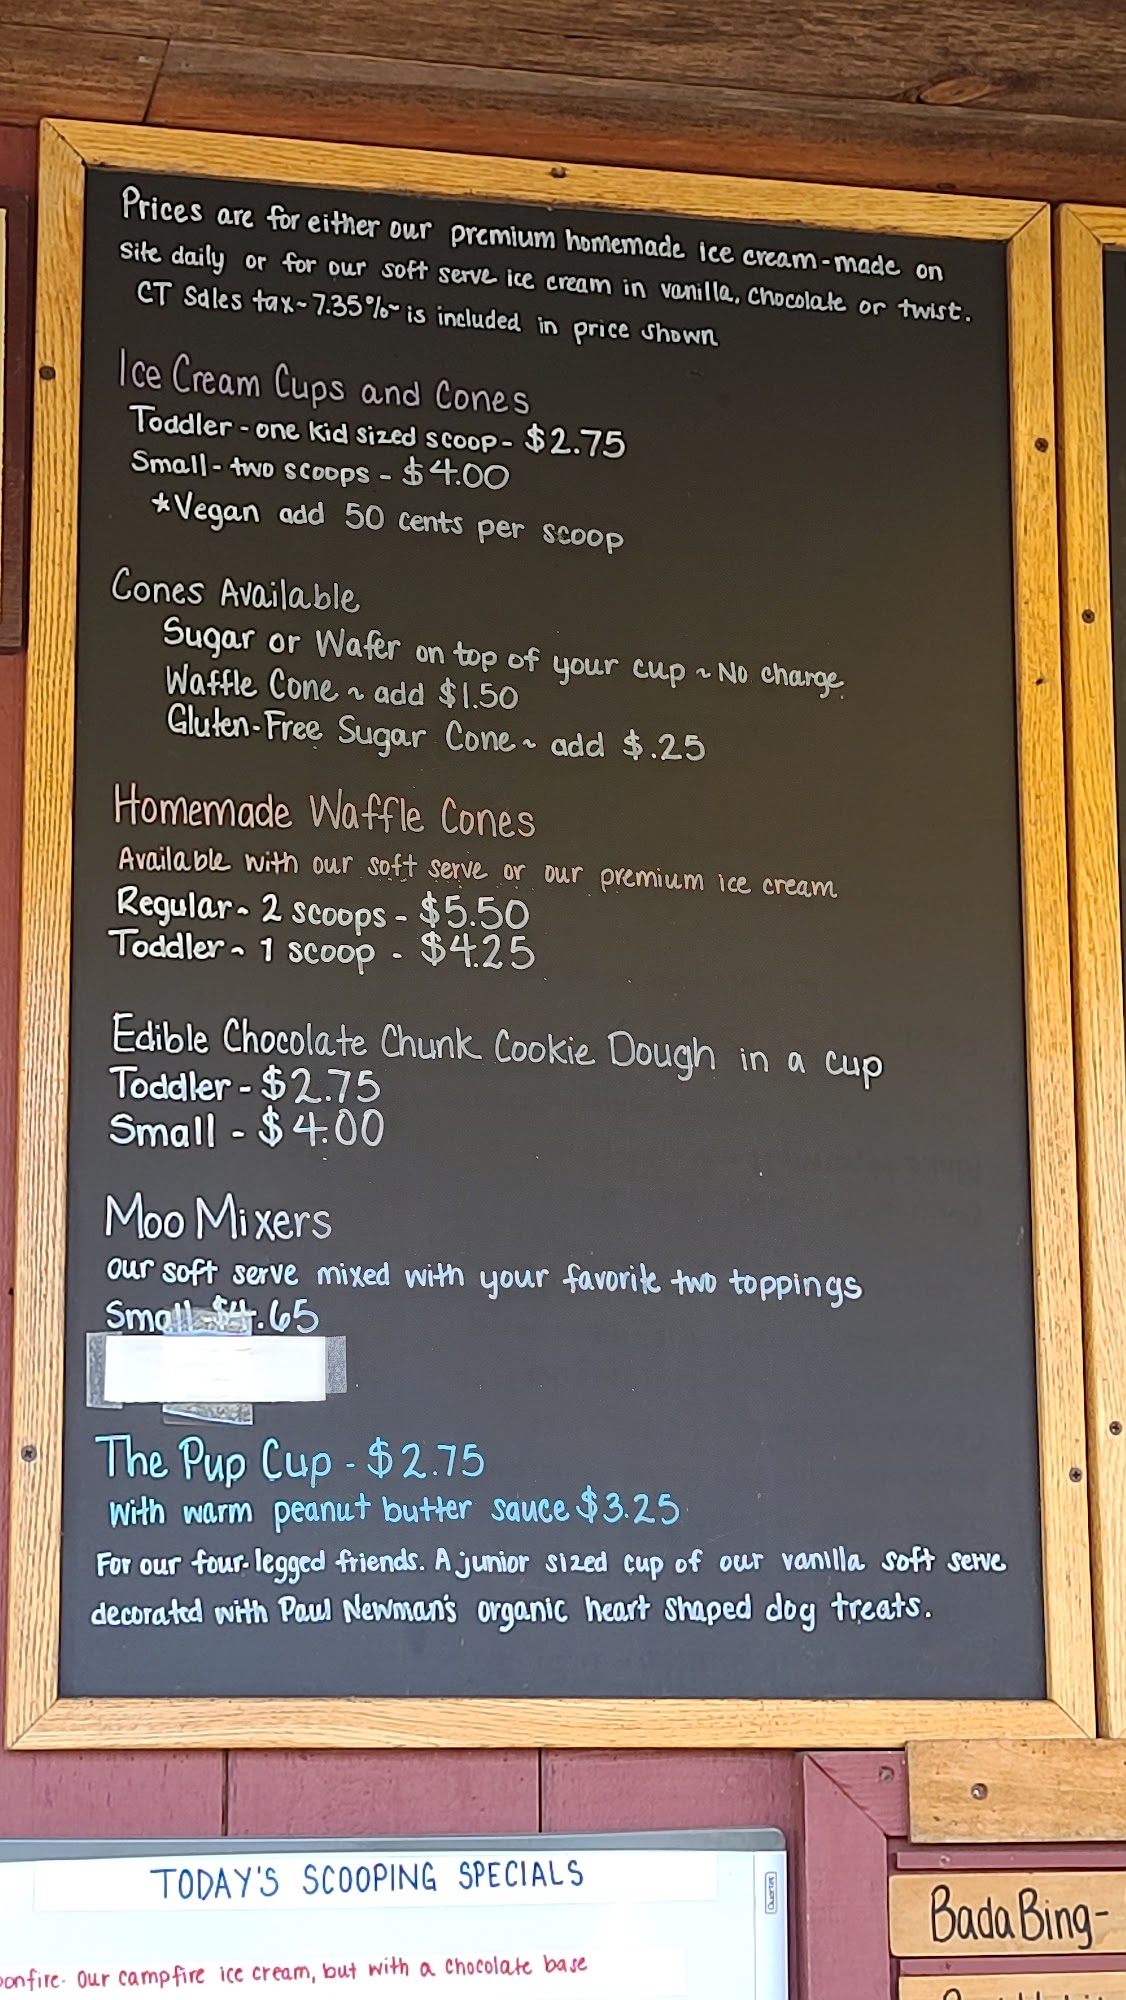 Prices are for either our premium homemade ice cream-made on
site daily or for our soft serve ice cream in vanilla, chocolate or twist.
CT Sales tax~7.35%~is included in price shown
Ice Cream Cups and Cones
Toddler - one kid sized scoop - $2.75
Small - two scoops - $4.00
*Vegan add 50 cents per scoop
Cones Available
Sugar or Wafer on top of your cup ~ No charge.
Waffle Cone ~ add $1.50
Gluten-Free Sugar Cone ~ add $.25
Homemade Waffle Cones
Available with our soft serve or our premium ice cream
Regular ~ 2 scoops - $5.50
Toddler ~ 1 scoop - $4.25
Edible Chocolate Chunk Cookie Dough in a cup
Toddler - $2.75
Small - $4.00
Moo Mixers
our soft serve mixed with your favorite two toppings
Small - $4.65
The Pup Cup - $2.75
with warm peanut butter sauce $3.25
For our four-legged friends. A junior sized cup of our vanilla soft serve
decorated with Paul Newman's organic heart shaped dog treats.
TODAY'S SCOOPING SPECIALS
Quartet
onfire- Our campfire ice cream, but with a chocolate base
Bada Bing-